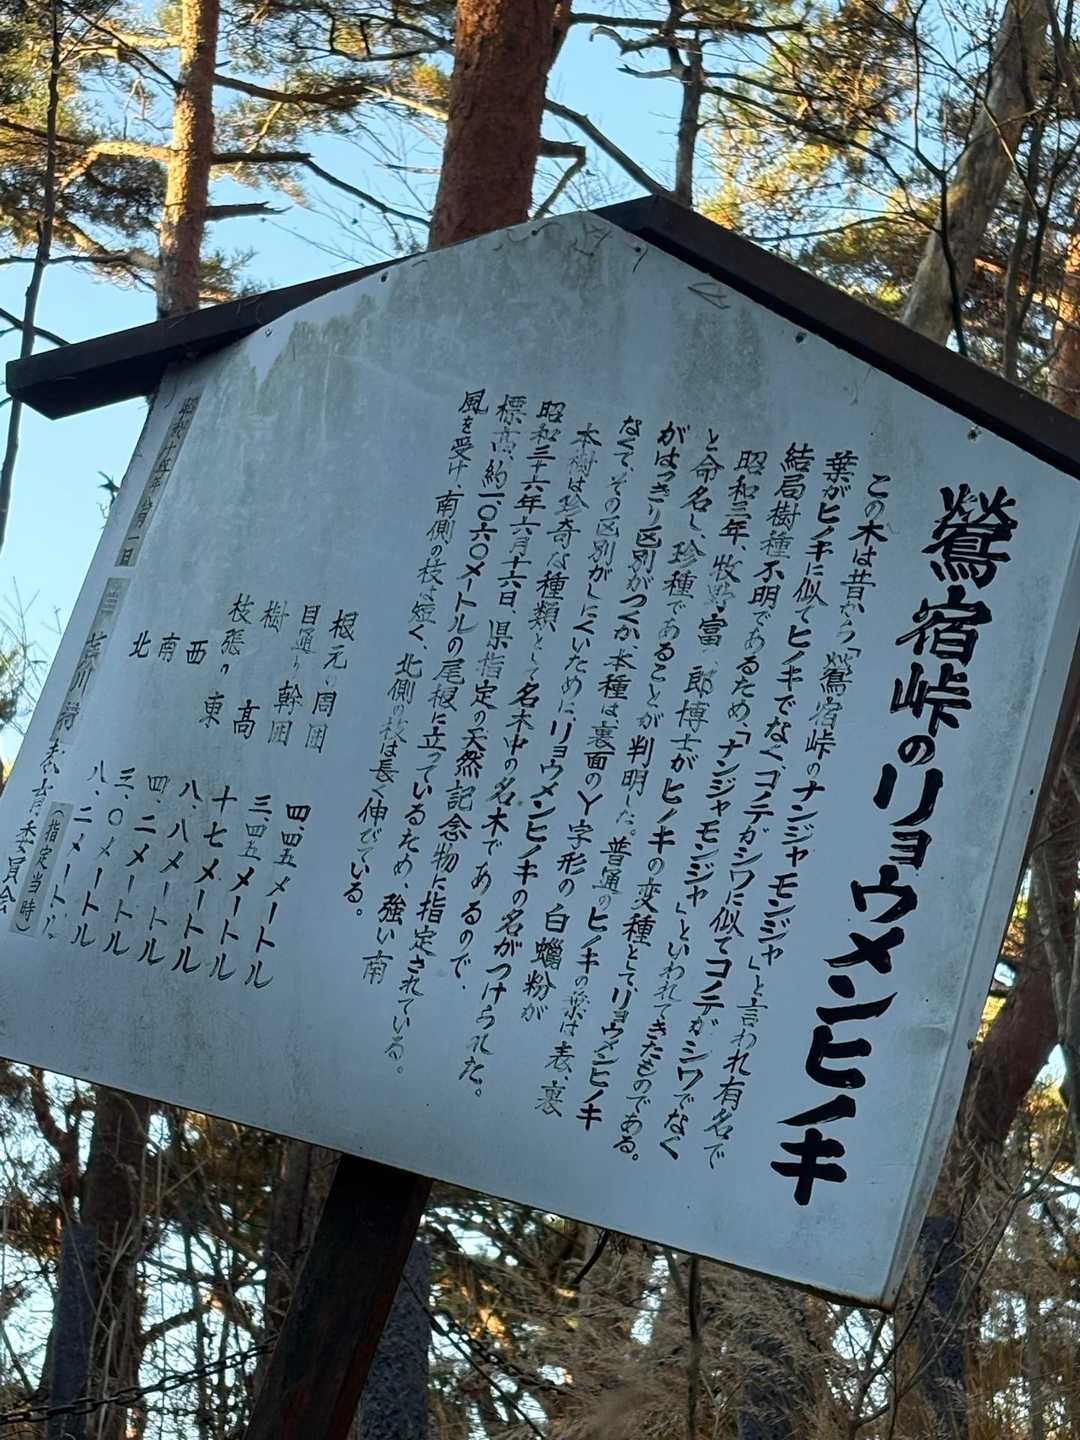 鶯宿峠のリョウメンヒノキ
この木は昔から「鶯宿峠のナンジャモンジャ」と言われ有名で
葉がヒノキに似てヒノキでなく、コテガシワに似てコノテガシワでなく
結局樹種不明であるため、「ナンジャモンジャ」といわれてきたものである。
昭和三年、牧野富 郎博士がヒノキの変種としてリョウメンヒノキ
と命名し、珍種であることが判明した。普通のヒノキの葉は表、裏
がはっきり区別がつくが、本種は、裏面のY字形の白蠟粉が
なくて、その区別がしにくいために、リョウメンヒノキの名がつけられた。
本樹は珍奇な種類として名木中の名木であるので、
昭和三十六年六月十六日、県指定の天然記念物に指定されている。
標高、約一、〇六〇メートルの尾根に立っているため、強い南
風を受け、南側の枝は短く、北側の枝は長く伸びている。
根元の周囲 四.四五メートル
目通り幹囲 三.四五メートル
樹 高 十七メートル
枝張り 東 八.八メートル
西 四.二メートル
南 三.〇メートル
北 八.二メートル
(指定当時)
月一日
芦川村教育委員会